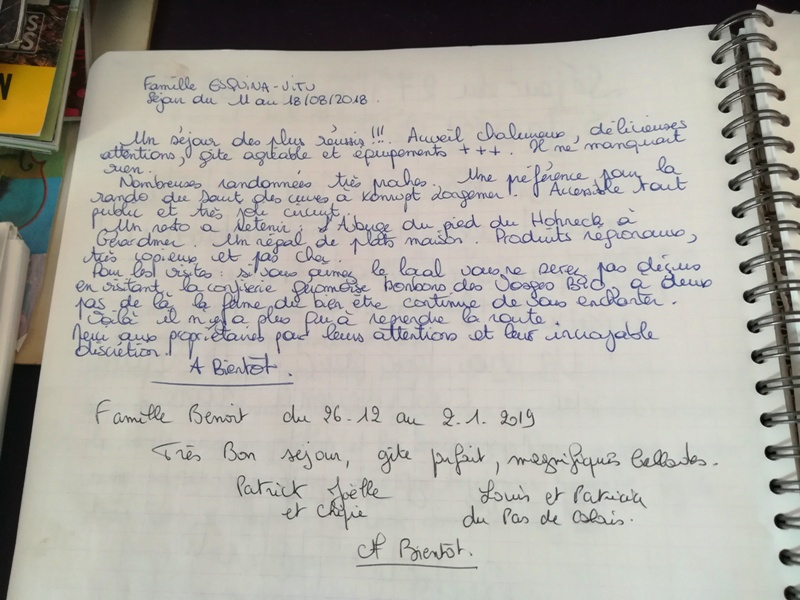 Famille ESQUINA-VITU
Séjour du 11 au 18/08/2018.
Un séjour des plus réussis !!!. Accueil chaleureux, délicieuses
attentions, gîte agréable et équipements +++. Il ne manquait
rien.
Nombreuses randonnées très proches. Une préférence pour la
rando du Saut des cuves à Xonrupt Longemer. Accessible tout
public et très joli circuit.
Un resto à retenir : l'Auberge du pied du Hohneck à
Gérardmer. Un régal de plats maison. Produits régionaux,
très copieux et pas cher.
Pour les visites : si vous aimez le local vous ne serez pas déçus
en visitant la confiserie géromoise bonbons des Vosges BIO, à deux
pas de là la ferme du bien être continue de vous enchanter.
Voilà il n'y a plus qu'à reprendre la route.
Merci aux propriétaires pour leurs attentions et leur incroyable
discrétion.
A Bientôt.
Famille Benoit du 26.12 au 2.1.2019
Très Bon séjour, gîte parfait, magnifiques ballades.
Patrick Joëlle Louis et Patricia
et du Pas de Calais.
A Bientôt.